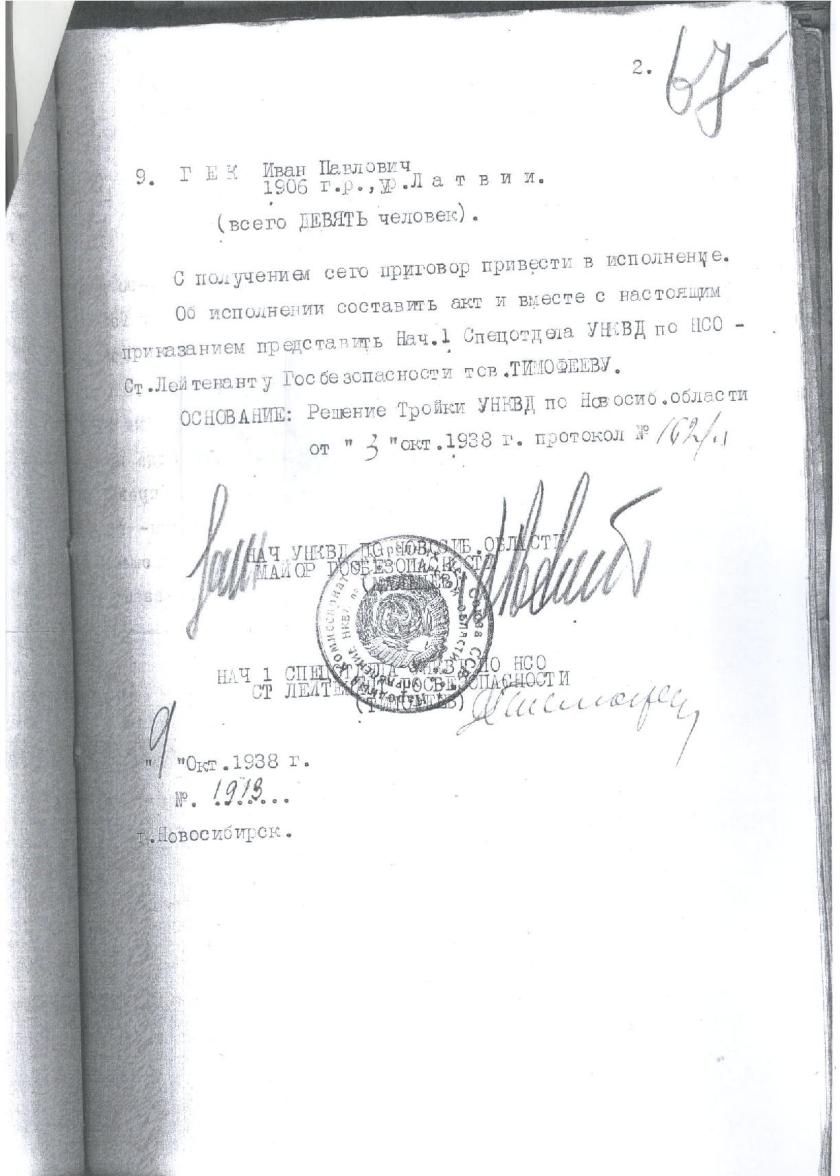 2.
67
9. Г Е К Иван Павлович
1906 г.р.,ур.Л а т в и и.
(всего ДЕВЯТЬ человек).
С получением сего приговор привести в исполнение.
Об исполнении составить акт и вместе с настоящим
приказанием представить Нач.1 Спецотдела УНКВД по НСО -
Ст.Лейтенанту Госбезопасности тов.ТИМОФЕЕВУ.
ОСНОВАНИЕ: Решение Тройки УНКВД по Новосиб.области
от " 3 "окт.1938 г. протокол №
НАЧ УНКВД ПО НОВОСИБ.ОБЛАСТИ
МАЙОР ГОСБЕЗОПАСНОСТИ
НАЧ 1 СПЕЦОТДЕЛА УНКВД ПО НСО
СТ ЛЕЙТЕНАНТ ГОСБЕЗОПАСНОСТИ
(ТИМОФЕЕВ)
" 9 "Окт.1938 г.
№. 1913...
г.Новосибирск.